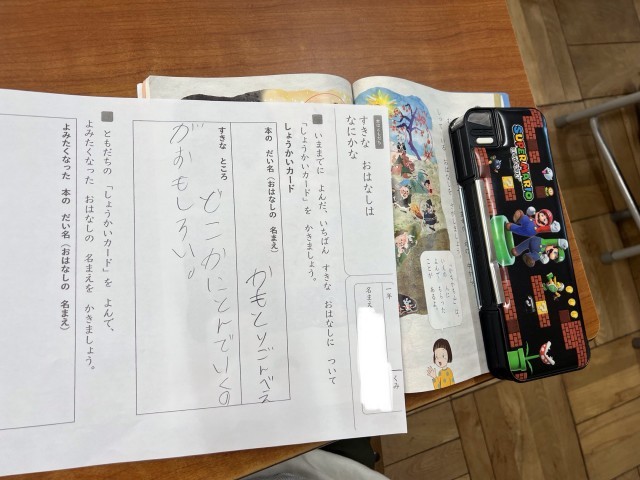 すきな おはなしは
なにかな
一年
くみ
名まえ
いままでに よんだ、いちばん すきな おはなしに ついて
「しょうかいカード」を かきましょう。
しょうかいカード
本の だい名（おはなしの 名まえ）
かもとりごんべえ
すきな ところ
どこかにとんでいくの
がおもしろい。
ともだちの 「しょうかいカード」を よんで、
よみたくなった おはなしの 名まえを かきましょう。
よみたくなった 本の だい名（おはなしの 名まえ）
SUPER MARIO